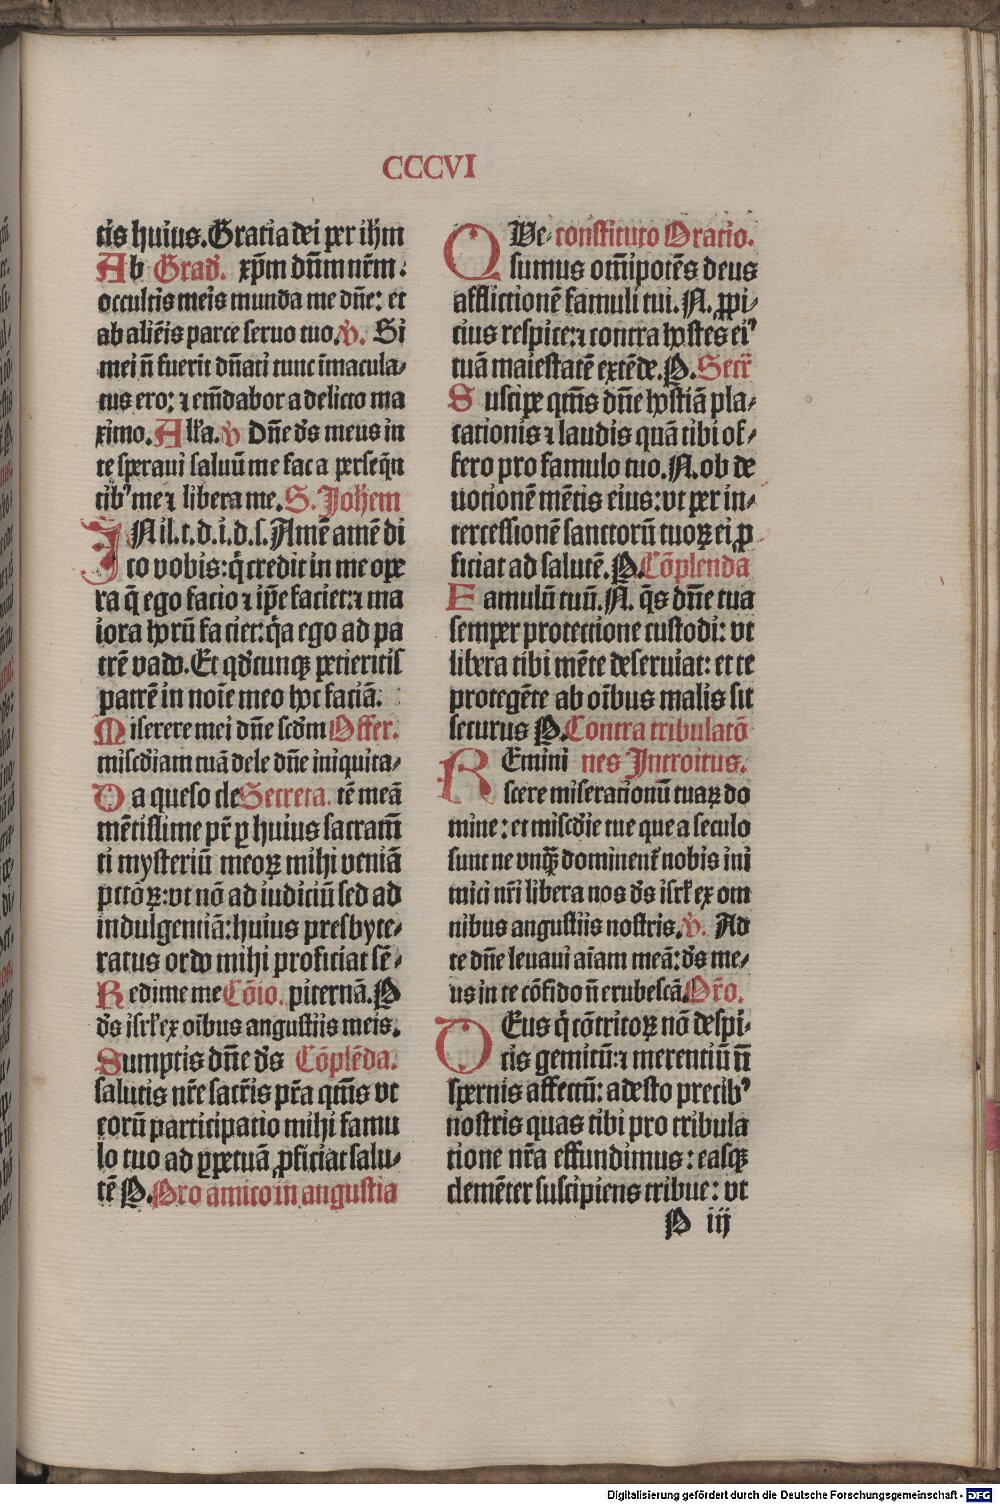 CCCVI
tis huius. Gratia dei per ih̅m
Ab Grad̅. xp̅m dn̅m nr̅m.
occultis meis munda me dn̅e: et
ab alien̅is parce seruo tuo. ℣. Si
mei n̅ fuerin̅t dn̅ati tunc im̅macula-
tus ero: ⁊ em̅dabor a delicto ma
ximo. All'a. ℣ Dn̅e ds̅ meus in
te speraui saluū me fac a perseq̅n
tibꝰ me ⁊ libera me. S. Johem
IN il. t. d. i. d. s. Amē amē di
co vobis: q̅ credit in me ope
ra q̅ ego facio ⁊ ip̅e faciet: ⁊ ma
iora horū faciet: q̅a ego ad pa
trē vado. Et qd̅cunqꝫ petieritis
patrē in noīe meo hoc faciā.
Miserere mei dn̅e scd̅m Offer.
misc̅diam tuā dele dn̅e iniquita-
Da queso cle Secreta. tē meā
mētissime pr̅ ꝑ huius sacram̅
ti mysteriū meoꝝ mihi veniā
pctōꝝ: vt nō ad iudiciū sed ad
indulgentiā: huius presbyte-
ratus ordo mihi proficiat sē-
Redime me Cōio. piternā. P
ds̅ isrl' ex oībus angustiis meis.
Sumptis dn̅e ds̅ Cōplēda.
salutis nr̅e sacr̅is pr̅a qm̅s vt
eorū participatio mihi famu
lo tuo ad ꝑpetuā ꝓficiat salu-
tē P. Pro amico in angustia
QVe- constituto Oratio.
sumus om̅ipotēs deus
afflictionē famuli tui. N. ꝓpi-
cius respice: ⁊ contra hostes eiꝰ
tuā maiestatē extēde. P. Secr̅
Suscipe qm̅s dn̅e hostiā pla-
cationis ⁊ laudis quā tibi of-
fero pro famulo tuo. N. ob de
uotionē mētis eius: vt per in-
tercessionē sanctorū tuoꝝ ei ꝓ
ficiat ad salutē. P. Cōplenda
Famulū tuū. N. qs̅ dn̅e tua
semper protectione custodi: vt
libera tibi mēte deseruiat: et te
protegēte ab oībus malis sit
securus P. Contra tribulatō
REmini nes Introitus.
scere miserationū tuaꝝ do
mine: et misc̅die tue que a seculo
sunt ne vnqꝫ̅ dominent̅ nobis ini
mici nr̅i libera nos ds̅ isrl' ex om
nibus angustiis nostris. ℣. Ad
te dn̅e leuaui aīam meā: ds̅ me-
us in te cōfido n̅ erubescā. Or̅o.
DEus q̅ cōtritoꝝ nō despi-
cis gemitū: ⁊ merentiū n̅
spernis affectū: adesto precibꝰ
nostris quas tibi pro tribula
tione nr̅a effundimus: easqꝫ
clemēter suscipiens tribue: vt
P iij
Digitalisierung gefördert durch die Deutsche Forschungsgemeinschaft - DFG